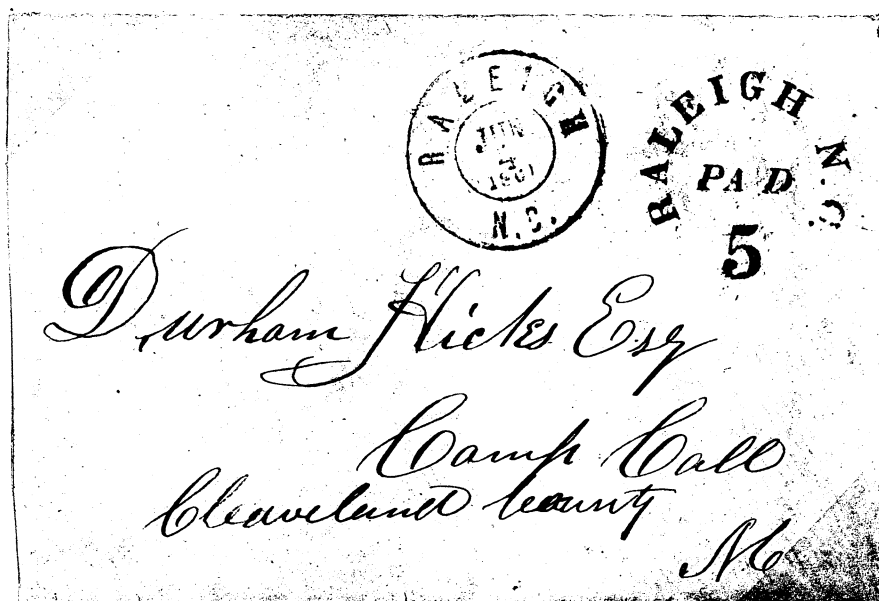 RALEIGH
JUN
1861
N.C.
RALEIGH N.C.
PAID
5
Durham Hicks Esq
Camp Call
Cleaveland County
NC